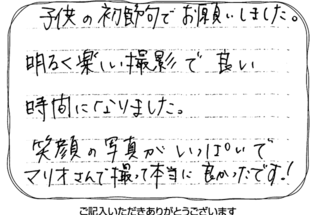 子供の初節句でお願いしました。
明るく楽しい撮影で良い
時間になりました。
笑顔の写真がいっぱいで
マリオさんで撮って本当に良かったです!
ご記入いただきありがとうございます